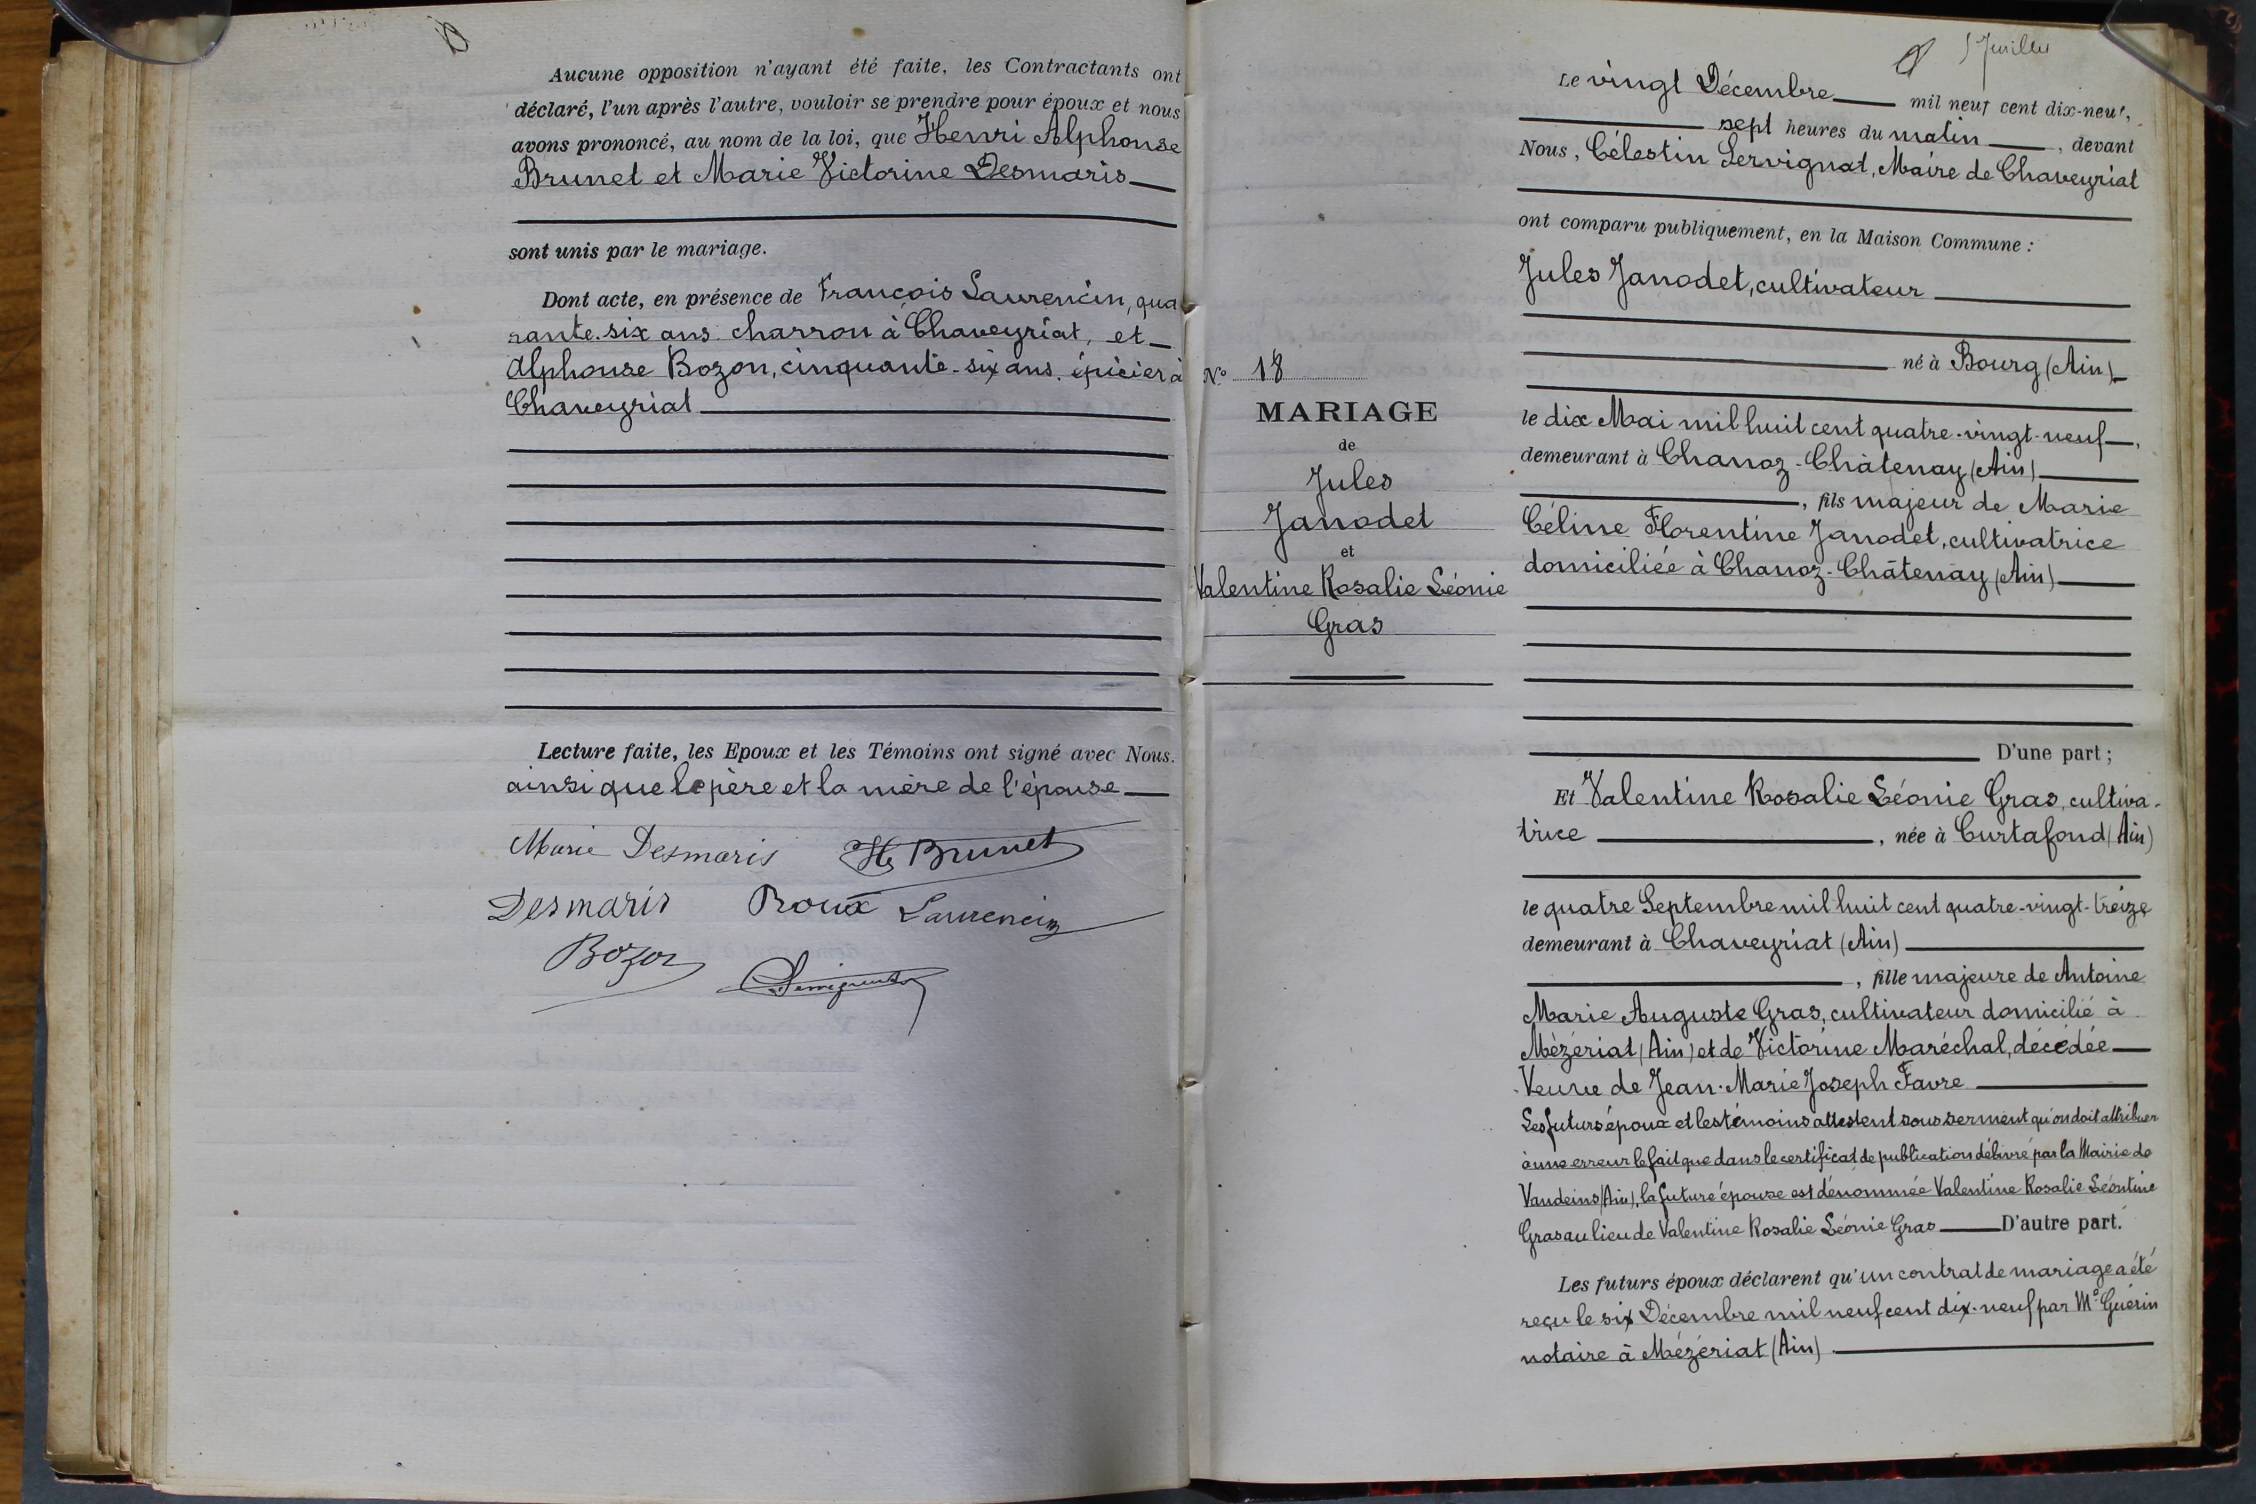 Aucune opposition n'ayant été faite, les Contractants ont
déclaré, l'un après l'autre, vouloir se prendre pour époux et nous
avons prononcé, au nom de la loi, que Henri Alphonse
Brunet et Marie Victorine Desmaris
sont unis par le mariage.
Dont acte, en présence de François Laurencin, qua
rante-six ans. charron à Chaveyriat, et
Alphonse Bozon, cinquante-six ans. épicier à
Chaveyriat
Lecture faite, les Epoux et les Témoins ont signé avec Nous.
ainsi que le père et la mère de l'épouse
Marie Desmaris H. Brunet
Desmaris Roux Laurencin
Bozon
5 Juillet
Nº 18
MARIAGE
de
Jules
Janodet
et
Valentine Rosalie Léonie
Gras
Le vingt Décembre mil neuf cent dix-neuf,
sept heures du matin, devant
Nous, Célestin Servignat, Maire de Chaveyriat
ont comparu publiquement, en la Maison Commune :
Jules Janodet, cultivateur
né à Bourg (Ain)
le dix Mai mil huit cent quatre-vingt-neuf,
demeurant à Chanoz-Châtenay (Ain)
, fils majeur de Marie
Céline Florentine Janodet, cultivatrice
domiciliée à Chanoz-Châtenay (Ain)
D'une part ;
Et Valentine Rosalie Léonie Gras, cultiva-
trice, née à Curtafond (Ain)
le quatre Septembre mil huit cent quatre-vingt-treize
demeurant à Chaveyriat (Ain)
, fille majeure de Antoine
Marie Auguste Gras, cultivateur domicilié à
Mézériat (Ain) et de Victorine Maréchal, décédée
Veuve de Jean-Marie Joseph Favre
Les futurs époux et les témoins attestent sous serment qu'on doit attribuer
à une erreur le fait que dans le certificat de publication délivré par la Mairie de
Vandeins (Ain), la future épouse est dénommée Valentine Rosalie Léontine
Gras au lieu de Valentine Rosalie Léonie Gras D'autre part.
Les futurs époux déclarent qu'un contrat de mariage a été
reçu le six Décembre mil neuf cent dix-neuf par Mᵉ Guérin
notaire à Mézériat (Ain)